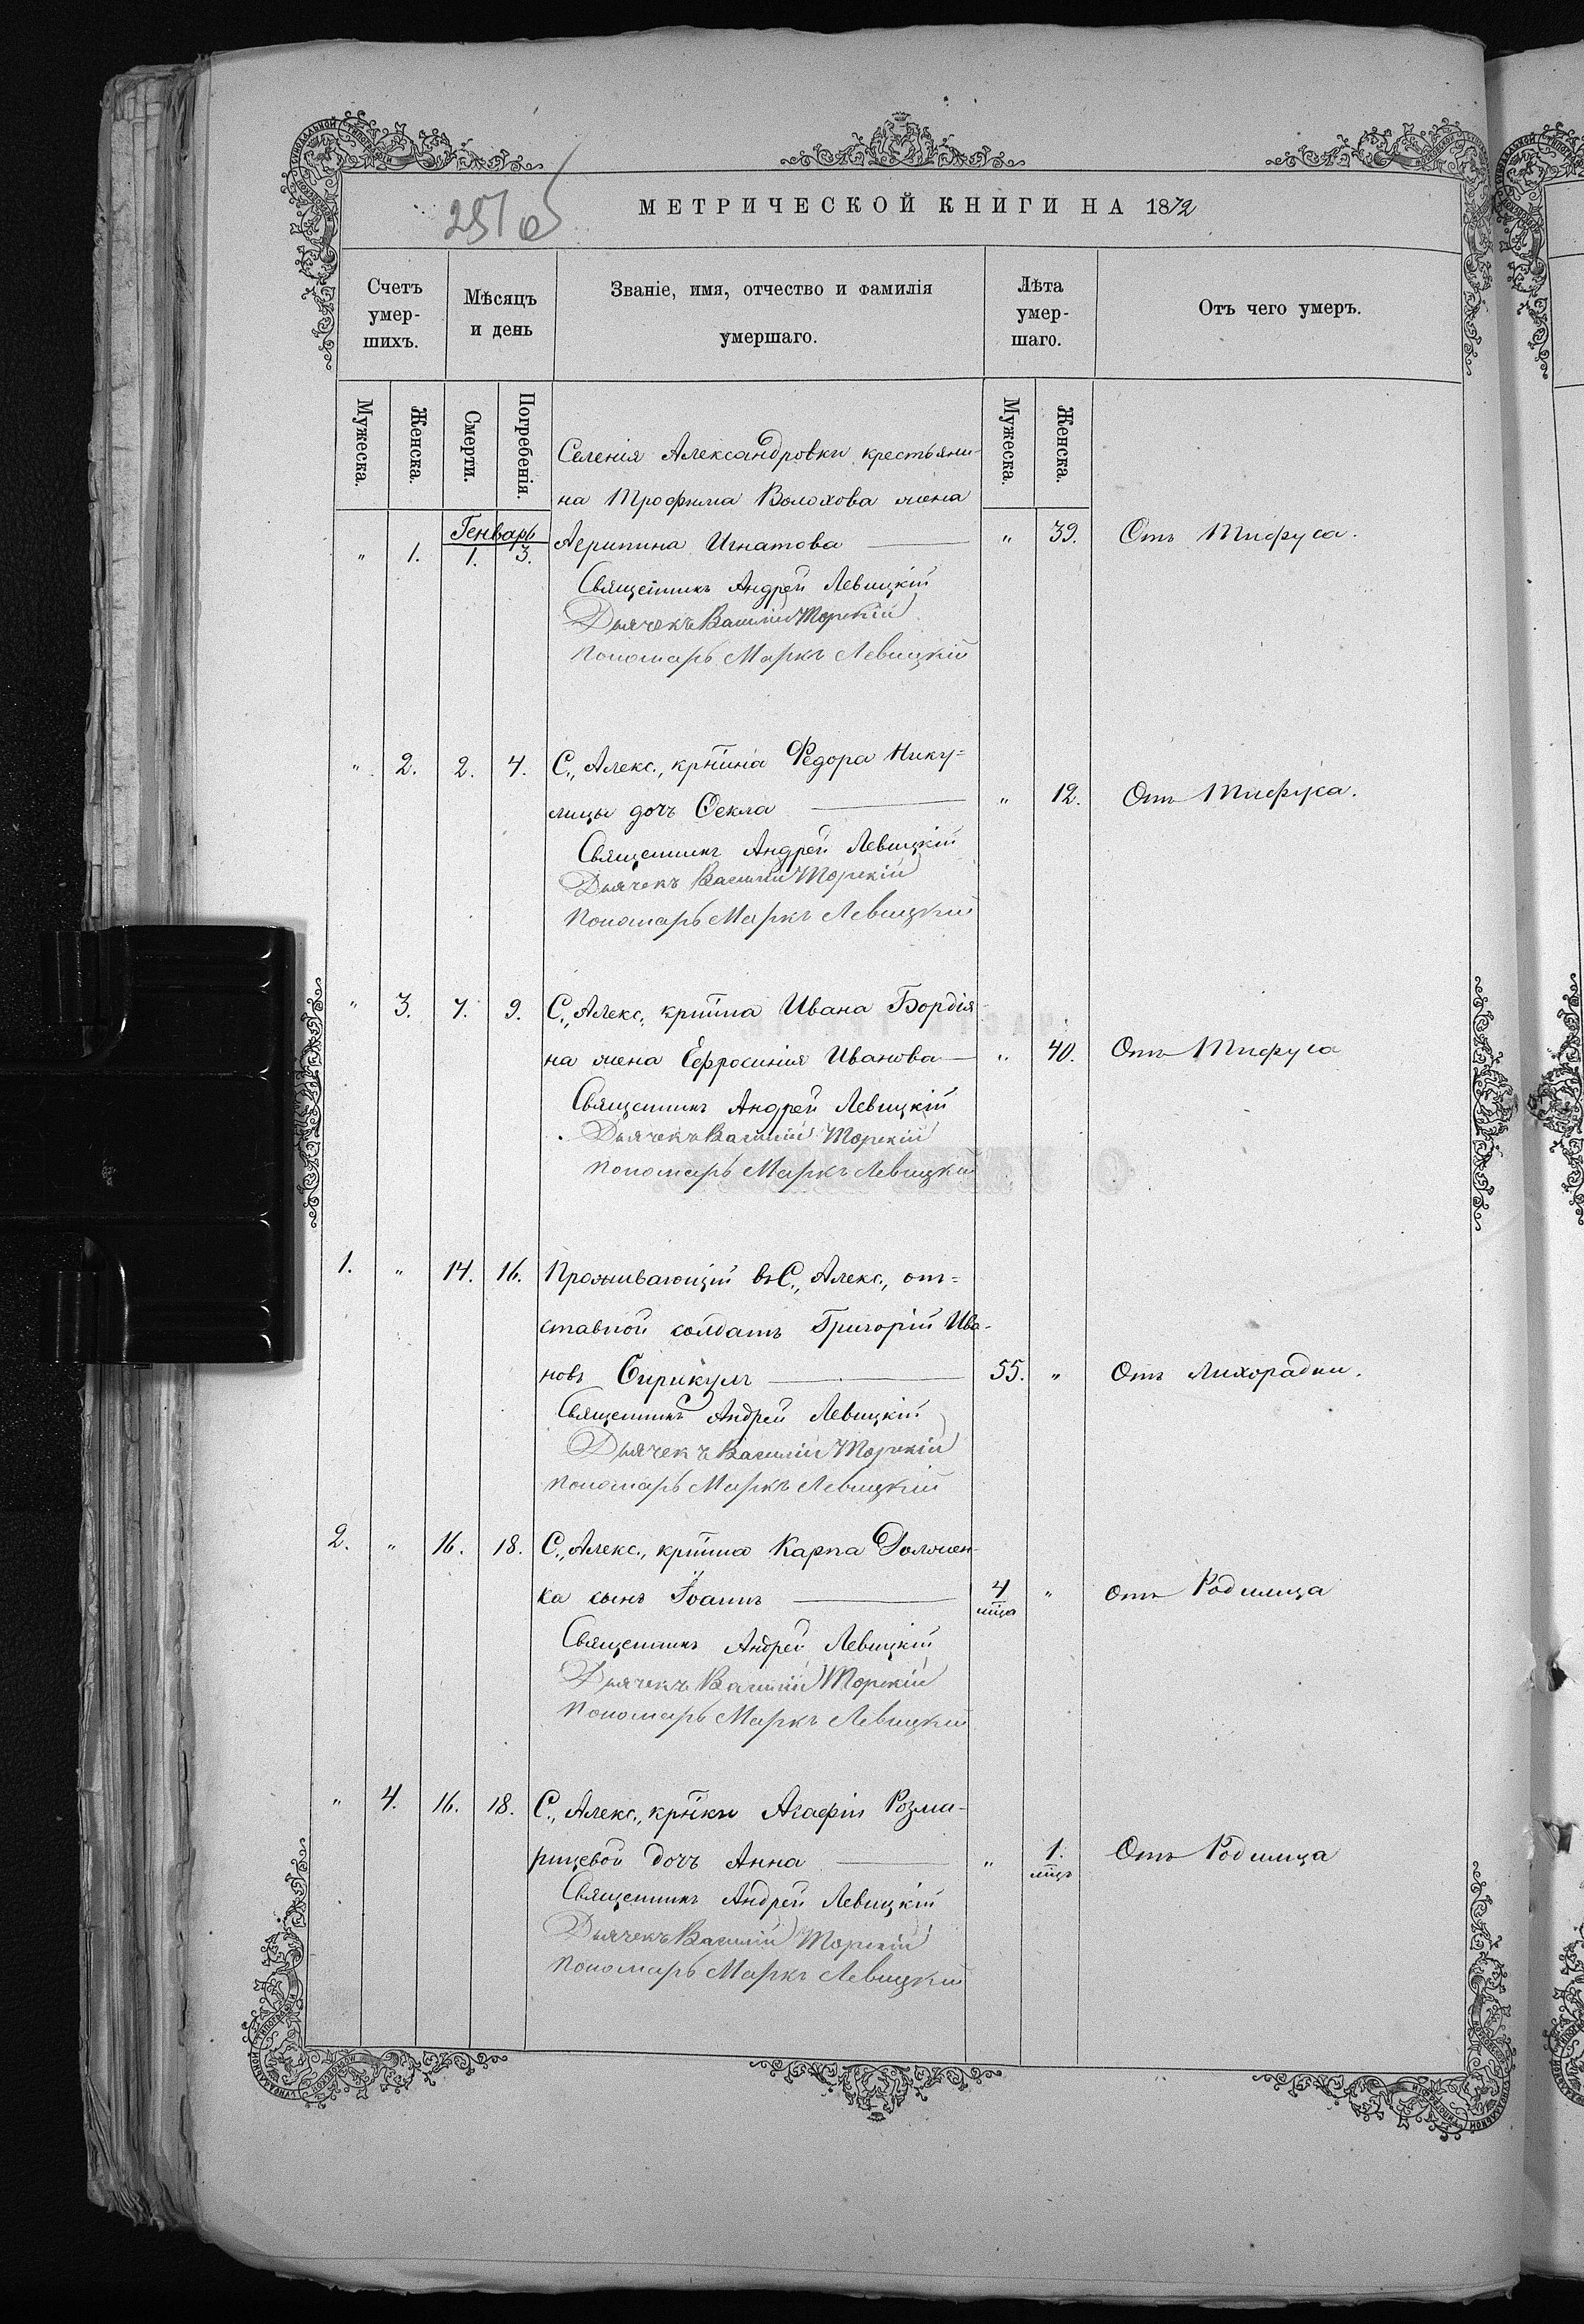 257 об
МЕТРИЧЕСКОЙ КНИГИ НА 1872
Счетъ умер-шихъ.
Мѣсяцъ и день
Званіе, имя, отчество и фамилія
умершаго.
Лѣта умер-шаго.
Отъ чего умеръ.
Мужеска.
Женска.
Смерти.
Погребенія.
Мужеска.
Женска.
Селенія Александровки крестьяни-
на Трофима Волохова жена
Генварь
" 1. 1. 3. Агрипина Игнатова " 39. Отъ Тифуса.
Священникъ Андрей Левицкій
Дьячекъ Василій Торскій
Пономарь Маркъ Левицкій
" 2. 2. 4. С., Алекс., крнина Федора Нику=
лицы дочь Ѳекла " 12. Отъ Тифуса.
Священникъ Андрей Левицкій
Дьячекъ Василій Торскій
Пономарь Маркъ Левицкій
" 3. 7. 9. С., Алекс., крнина Ивана Бордія-
на жена Ефросинія Иванова " 40. Отъ Тифуса
Священникъ Андрей Левицкій
Дьячекъ Василій Торскій
Пономарь Маркъ Левицкій
1. " 14. 16. Проживающій въ С., Алекс., от=
ставной солдатъ Григорій Ива-
новъ 55. " Отъ лихорадки.
Священникъ Андрей Левицкій
Дьячекъ Василій Торскій
Пономарь Маркъ Левицкій
2. " 16. 18. С., Алекс., крнина Карпа
ка сынъ Іоаннъ 4 мца " Отъ Родимца
Священникъ Андрей Левицкій
Дьячекъ Василій Торскій
Пономарь Маркъ Левицкій
" 4. 16. 18. С., Алекс., крнки Агафіи Розма-
рицевой дочь Анна " 1. мцъ Отъ Родимца
Священникъ Андрей Левицкій
Дьячекъ Василій Торскій
Пономарь Маркъ Левицкій